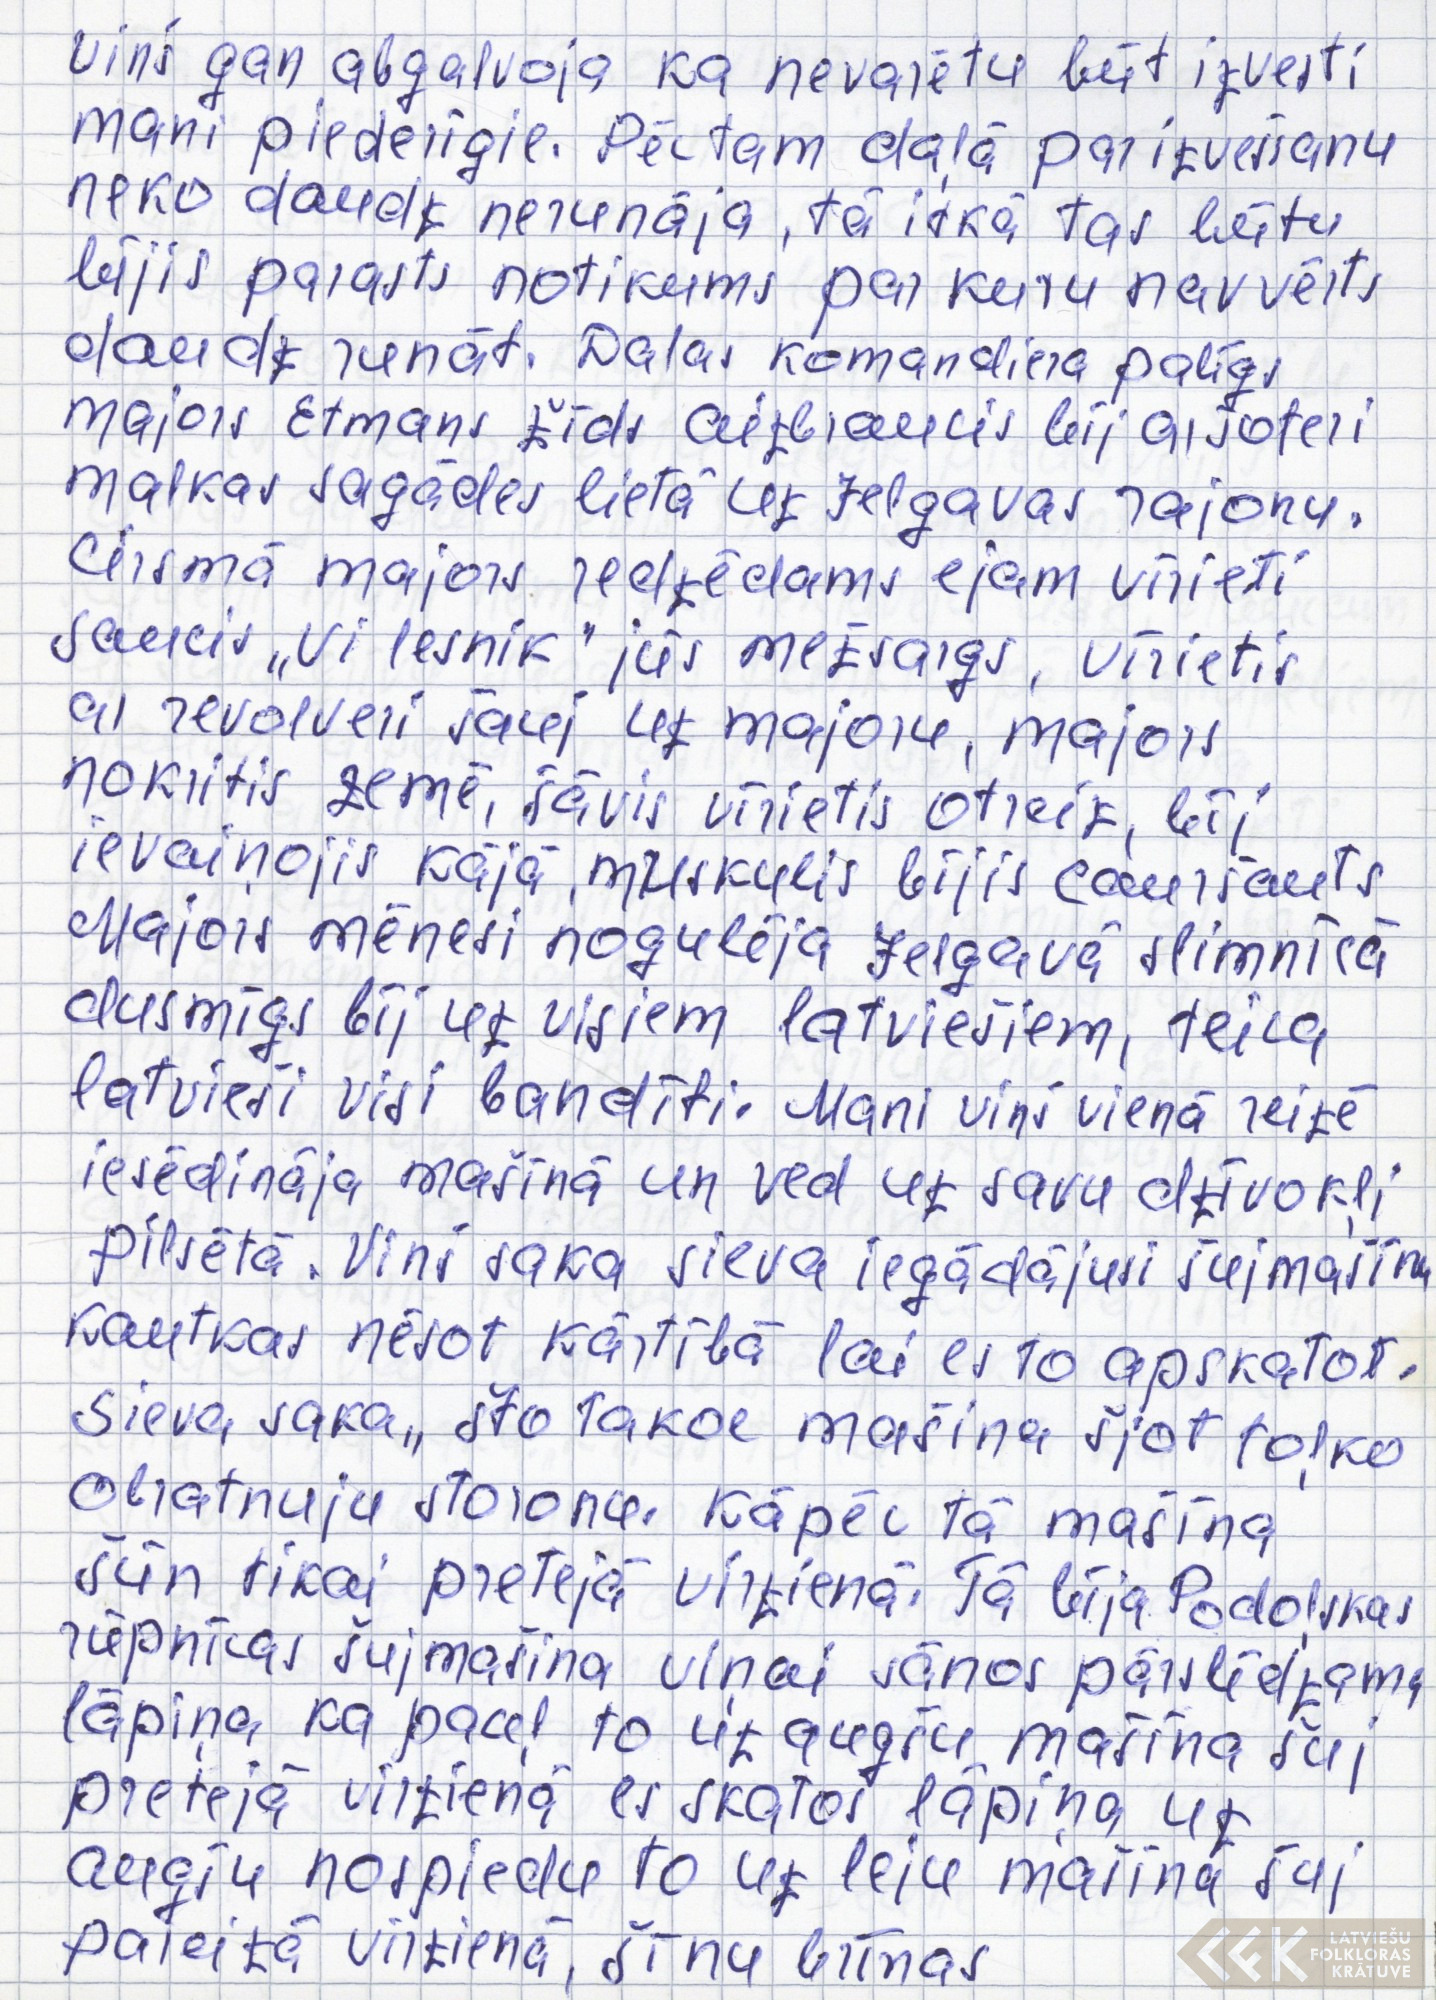 viņš gan abgalvoja ka nevarētu būt izvesti
mani piederīgie. Pēctam daļā parizvešanu
neko daudz nerunāja, tā itkā tas būtu
bijis parasts notikums par kuru nav vērts
daudz runāt. Dalas komandiera palīgs
majors Etmans žīds aizbraucis bij aršoferi
malkas sagādes lietā uz Jelgavas rajonu.
Cirsmā majors redzēdams ejam vīrieti
saucis „vi lesnik" jūs mežsargs, vīrietis
ar revolveri šauj uz majoru, majors
nokritis zemē, šāvis vīrietis otreiz, bij
ievaiņojis kājā, muskulis bijis cauršauts
Majors mēnesi nogulēja Jelgavā slimnīcā
dusmīgs bij uz visiem latviešiem, teica
latvieši visi bandīti. Mani viņš vienā reizē
iesēdināja mašīnā un ved uz savu dzīvokļi
pilsētā. Viņš saka sieva iegādājusi šujmašīnu
kautkas nēsot kārtībā lai es to apskatot.
Sieva saka „što takoe mašina šjot toļko
obratnuju storonu. Kāpēc tā mašīna
šūn tikai pretejā virzienā. Tā bija Podoļskas
rūpnīcas šujmašina viņai sānos pārslēdzama
lāpiņa ka pauļ to uz augšu mašīna šuj
pretejā virzienā es skatos lāpiņa uz
augšu nospiedu to uz leju mašīna šuj
pareizā virzienā, šī nu brīnas
LATVIEŠU
FOLKLORAS
KRĀTUVE